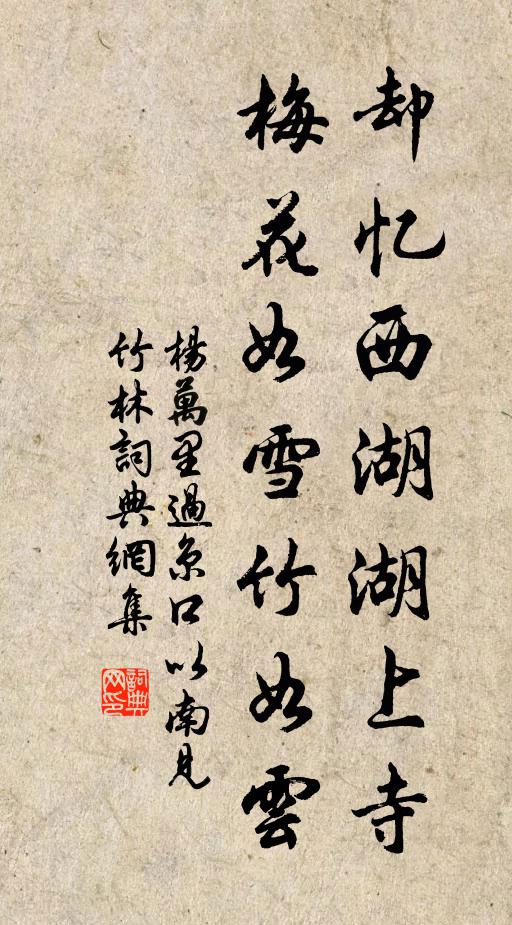 却忆西湖湖上寺
梅花如雪竹如雲
楊萬里過京口以南見
竹林詞典網集
詞典
网印